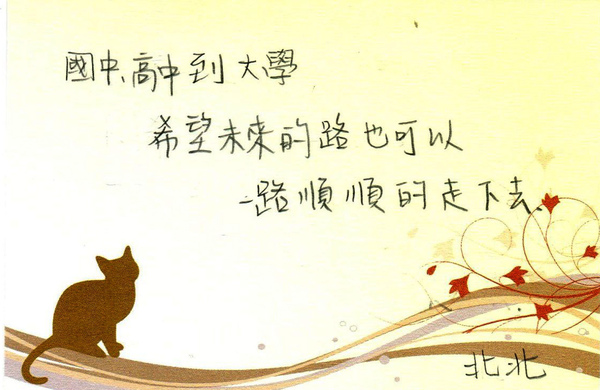 國中、高中到大學
希望未來的路也可以
一路順順的走下去、
北北